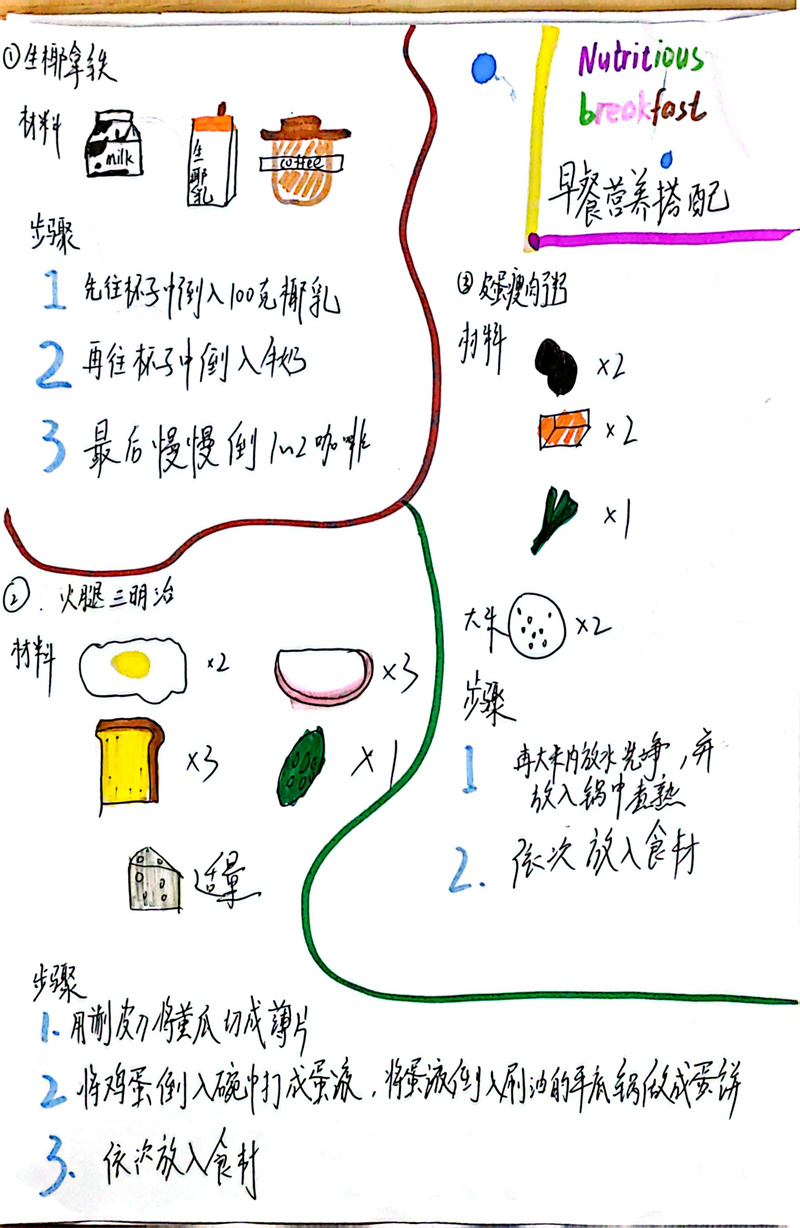 Nutritious
breakfast
早餐营养搭配
①生椰拿铁
材料
milk
生椰乳
coffee
步骤
1 先往杯子中倒入100克椰乳
2 再往杯子中倒入牛奶
3 最后慢慢倒入咖啡
②.火腿三明治
材料
×2
×3
×3
×1
适量
步骤
1. 用削皮刀将黄瓜切成薄片
2 将鸡蛋倒入碗中打成蛋液,将蛋液倒入刷油的平底锅做成蛋饼
3. 依次放入食材
③皮蛋瘦肉粥
材料
×2
×2
×1
大米 ×2
步骤
1 再大米内放水洗净,并
放入锅中煮熟
2. 依次放入食材